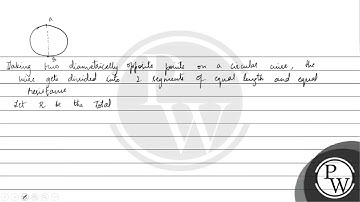 A
B
Taking two diametrically opposite points on a circular wire, the
wire gets divided into 2 segments of equal length and equal
resistance
Let R be the total
PW
PW